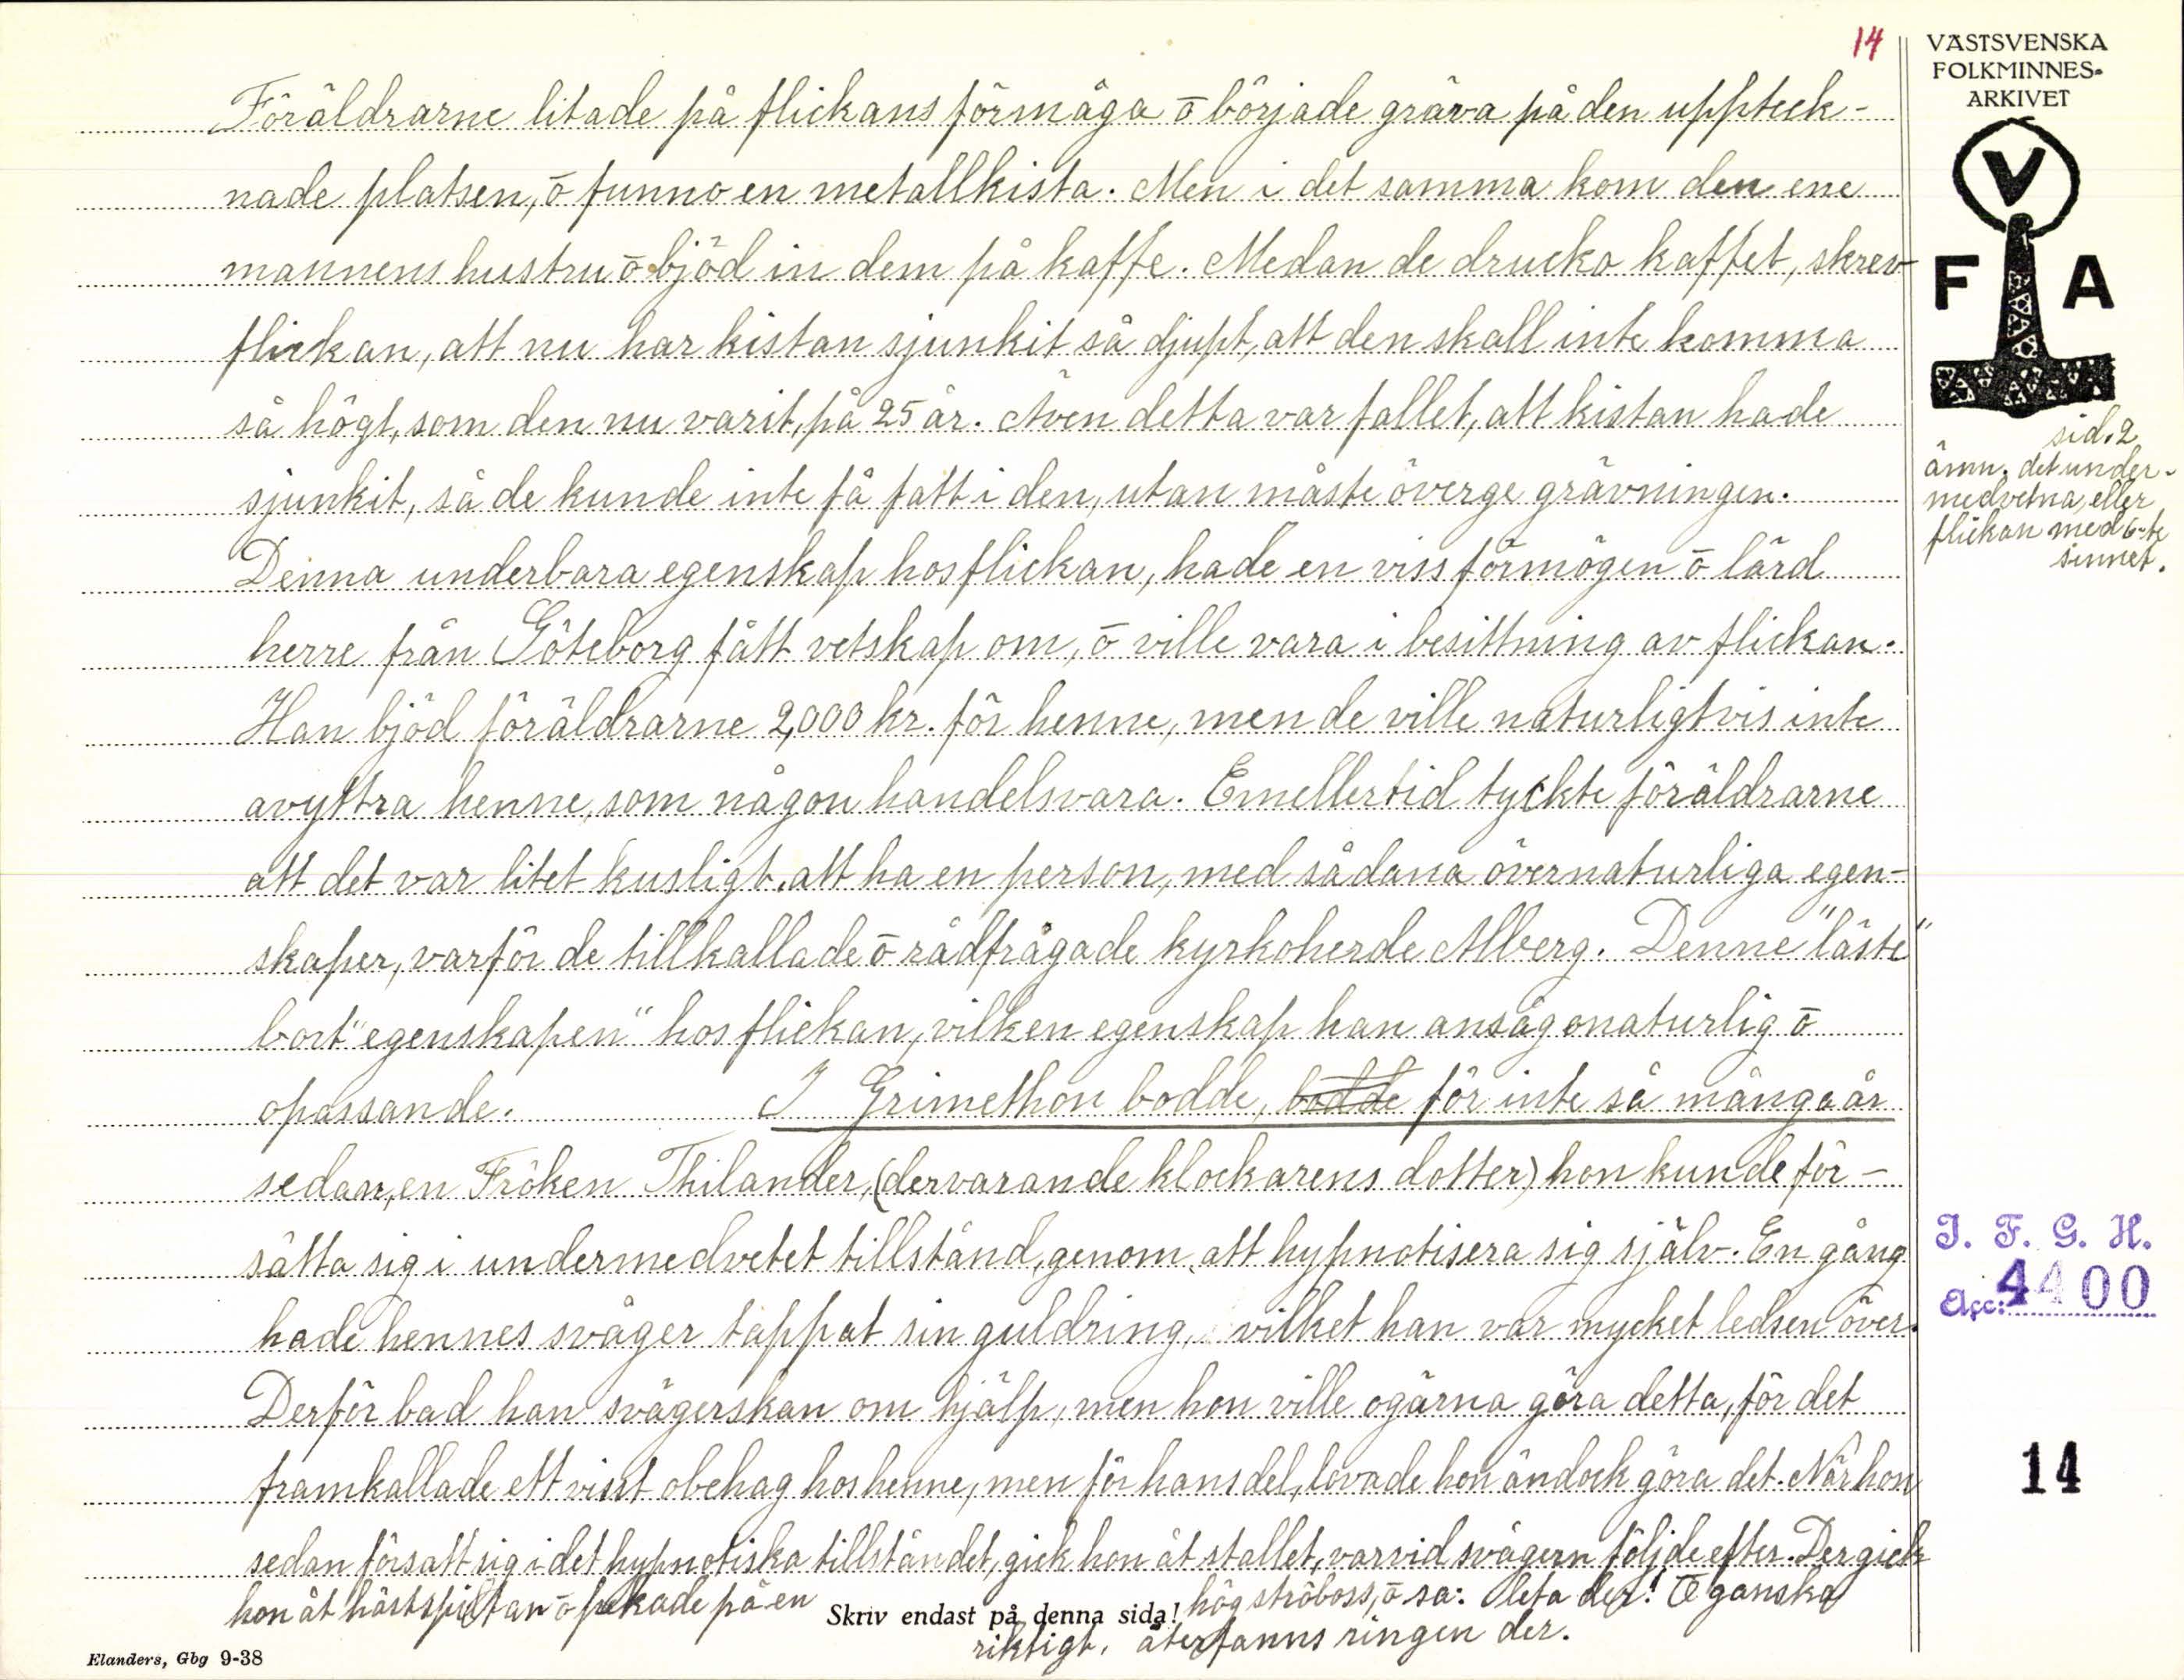 14
VÄSTSVENSKA
FOLKMINNES-
ARKIVET
V
F A
Föräldrarne litade på flickans förmåga ō började gräva på den uppteck-
nade platsen, ō funno en metallkista. Men i det samma kom den ene
mannens hustru ō bjöd in dem på kaffe. Medan de drucko kaffet, skrev
flickan, att nu har kistan sjunkit så djupt, att den skall inte komma
så högt, som den nu varit, på 25 år. Även detta var fallet, att kistan hade
sjunkit, så de kunde inte få fatt i den, utan måste överge grävningen.
Denna underbara egenskap hos flickan, hade en viss förmögen ō lärd
herre från Göteborg fått vetskap om, ō ville vara i besittning av flickan.
Han bjöd föräldrarne 2,000 kr. för henne, men de ville naturligtvis inte
avyttra henne, som någon handelsvara. Emellertid tyckte föräldrarne
att det var litet kusligt, att ha en person, med sådana övernaturliga egen-
skaper, varför de tillkallade ō rådfrågade kyrkoherde Alberg. Denne "läste"
bort "egenskapen" hos flickan, vilken egenskap han ansåg onaturlig ō
opassande. I Grimethon bodde, bodde för inte så många år
sedan, en Fröken Thilander, (dervarande klockarens dotter) hon kunde för-
sätta sig i undermedvetet tillstånd, genom att hypnotisera sig själv. En gång
hade hennes svåger tappat sin guldring, vilket han var mycket ledsen över.
Derför bad han svägerskan om hjälp, men hon ville ogärna göra detta, för det
framkallade ett visst obehag hos henne, men för hans del, lovade hon ändock göra det. När hon
sedan försatt sig i det hypnotiska tillståndet, gick hon åt stallet, varvid svågern följde efter. Der gick
hon åt hästspiltan ō pekade på en hög ströboss, ō sa: leta der! Ō ganska
riktigt, återfanns ringen der.
Skriv endast på denna sida!
Elanders, Gbg 9-38
sid. 2
ämn. det under-
medvetna, eller
flickan med 6-te
sinnet.
I. F. G. H.
Acc: 4400
14